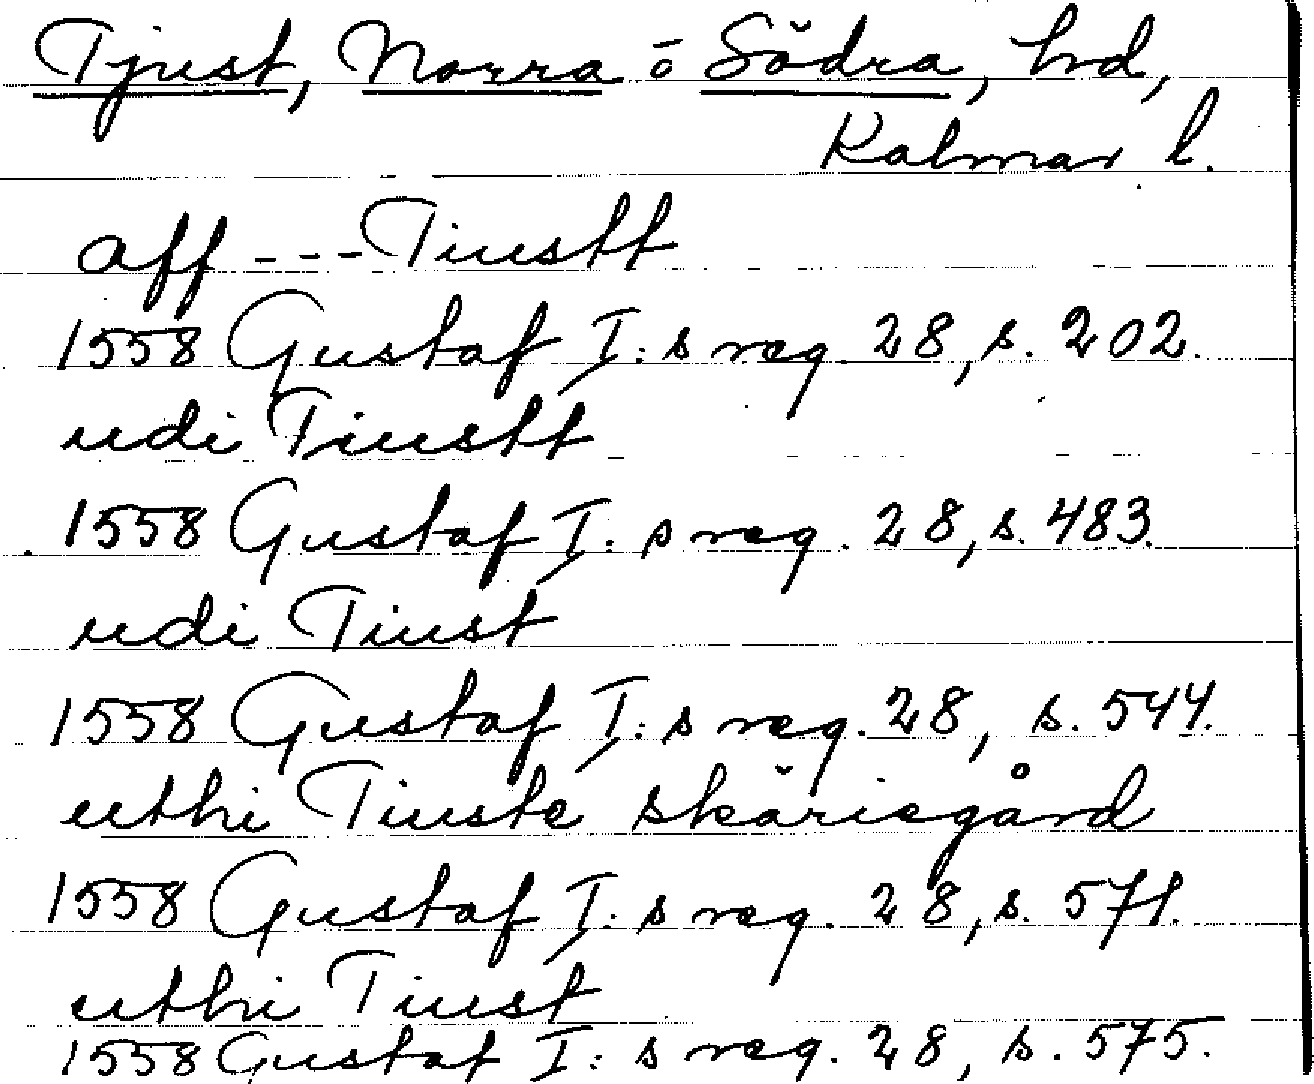 Tjust, Norra o Södra, hd,
Kalmar l.
aff --- Tiustt
1558 Gustaf I:s reg. 28, s. 202.
udi Tiustt
1558 Gustaf I:s reg. 28, s. 483.
udi Tiust
1558 Gustaf I:s reg. 28, s. 544.
uthi Tiuste skäriegård
1558 Gustaf I:s reg. 28, s. 571.
uthi Tiust
1558 Gustaf I:s reg. 28, s. 575.